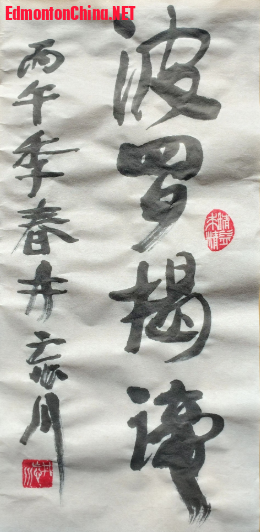 EdmontonChina.NET
波罗揭谛
丙午季春舟